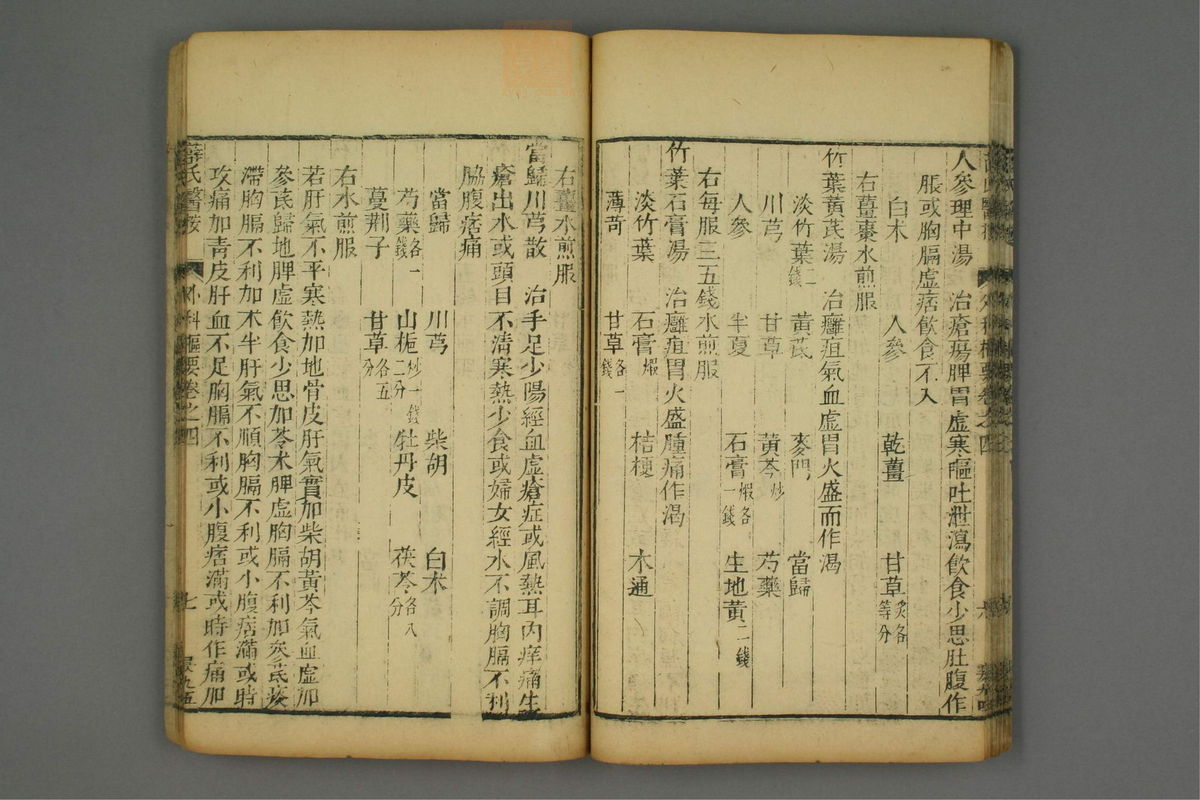 人參理中湯　治瘡瘍脾胃虛寒嘔吐泄瀉飲食少思肚腹作
脹或胸膈虛痞飲食不入
白朮　人參　乾薑　甘草炙各等分
右薑棗水煎服
竹葉黃芪湯　治癰疽氣血虛胃火盛而作渴
淡竹葉二錢　黃芪　麥門　當歸
川芎　甘草　黃芩炒　芍藥
人參　半夏　石膏煆各一錢　生地黃二錢
右每服三五錢水煎服
竹葉石膏湯　治癰疽胃火盛腫痛作渴
淡竹葉　石膏煆　桔梗　木通
薄荷　甘草各一錢
右薑水煎服
當歸川芎散　治手足少陽經血虛瘡症或風熱耳內痒痛生
瘡出水或頭目不清寒熱少食或婦女經水不調胸膈不利
脇腹痞痛
當歸　川芎　柴胡　白朮
芍藥各一錢　山梔炒一錢二分　牡丹皮　茯苓各八分
蔓荆子　甘草各五分
右水煎服
若肝氣不平寒熱加地骨皮肝氣實加柴胡黃芩氣血虛加
參芪歸地脾虛飲食少思加苓朮脾虛胸膈不利加參芪痰
滯胸膈不利加朮半肝氣不順胸膈不利或小腹痞滿或時
攻痛加青皮肝血不足胸膈不利或小腹痞滿或時作痛加
薛氏醫按　外科樞要卷之四　七